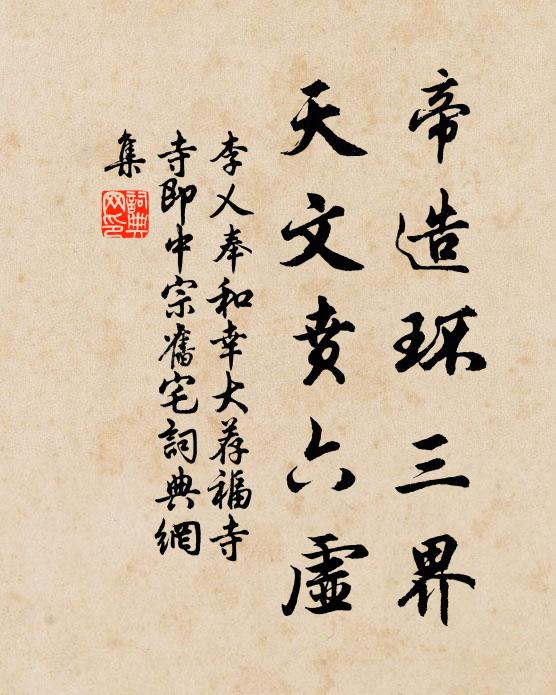 帝造环三界
天文贲六虚
李乂奉和幸大荐福寺
寺即中宗舊宅詞典網
集
詞典网印